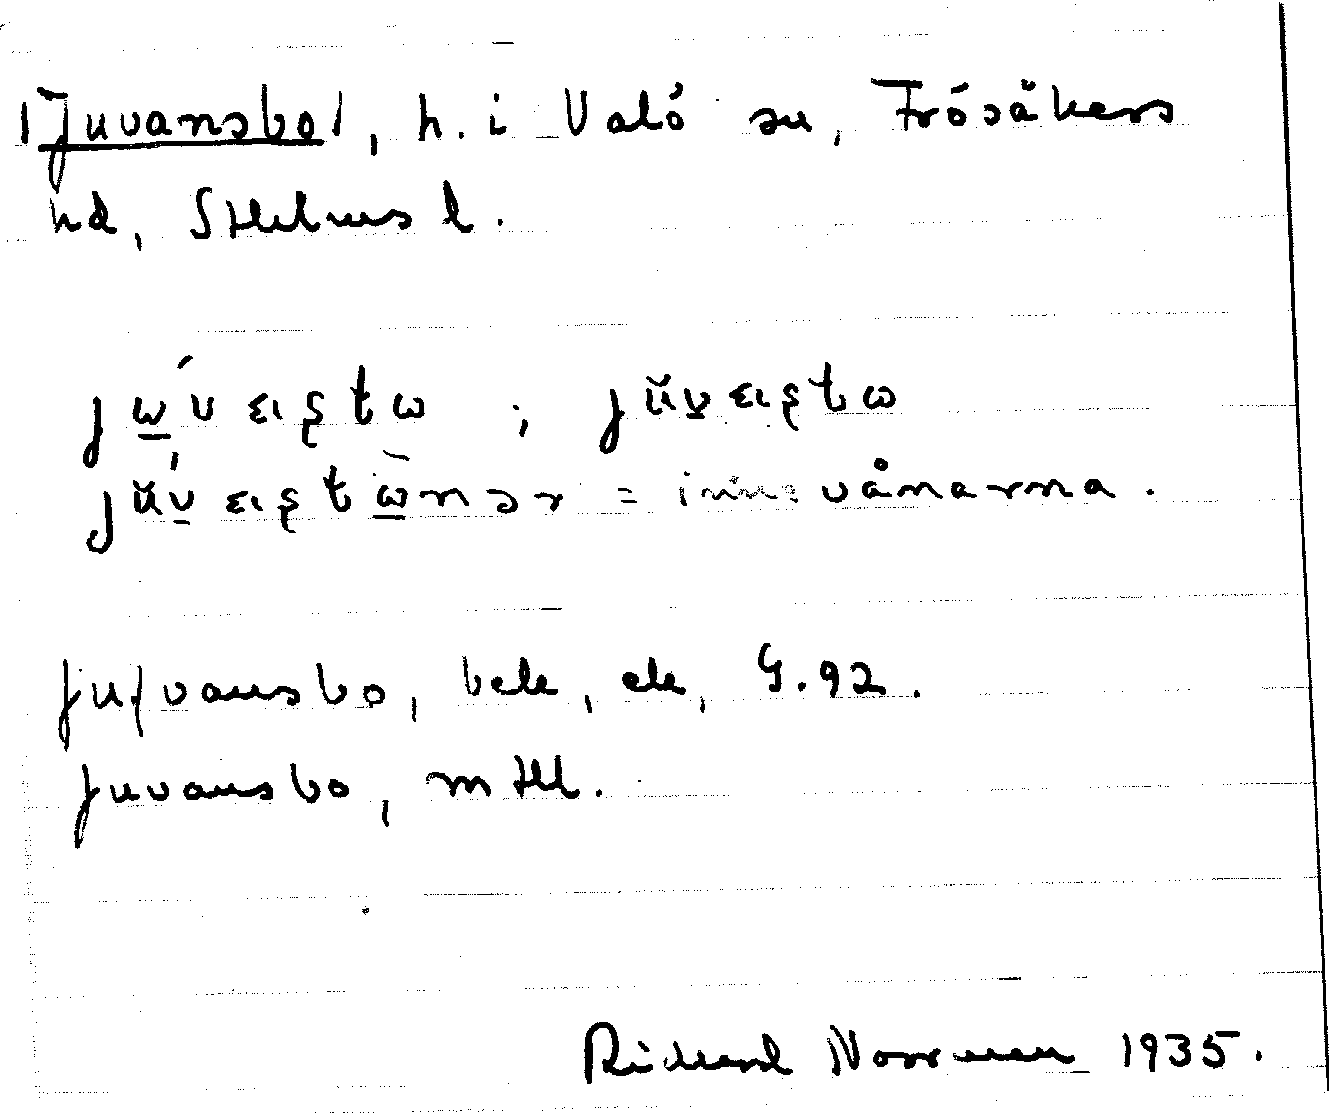 [Juvansbo], h. i Valö sn, Frösåkers
hd, Sthlms l.
jώ̱v ɛıʂtω ; jŭv̱ɛıʂtω
jŭv̱́ɛıʂtὼ̱nər = innevånarna.
Jufvansbo, bebe, ek, G.92.
Juvansbo, mtll.
Rickard Norrman 1935.